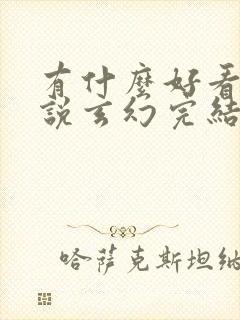 有什麼好看
說玄幻完結
哈薩克斯坦納